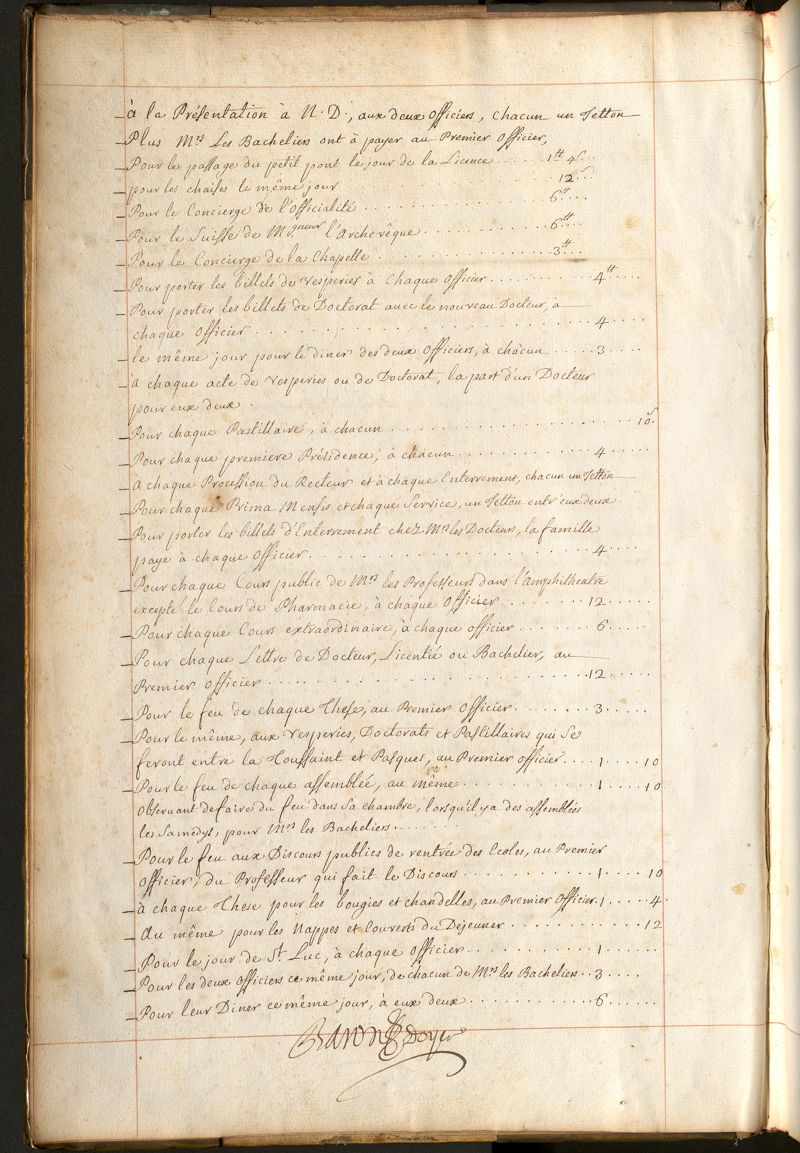 à la Présentation à N. D., aux deux officiers, chacun un Jetton
Plus Mrs Les Bacheliers ont à payer au Premier officier,
Pour le passage du petit pont le jour de la Licence . . . . . 1tt 4s...
pour les chaises le même jour . . . . . 12s
Pour le Concierge de l'officialité . . . . . 6tt....
Pour le Suisse de M.gneur l'Archevêque . . . . . 6tt....
Pour le Concierge de la Chapelle . . . . . 3tt....
Pour porter les billets de Vesperies à Chaque officier . . . . . 4tt.....
Pour porter les billets de Doctorat avec le nouveau Docteur, à
chaque officier . . . . . 4.....
le même jour pour le diner des deux officiers, à chacun . . . . . 3.....
à chaque acte de Vesperies ou de Doctorat, la part d'un Docteur
pour eux deux .
Pour chaque Pastillaire, à chacun . . . . . 10s.
Pour chaque premiere Présidence, à chacun . . . . . 4.....
à chaque Procession du Recteur et à chaque Enterrement, chacun un Jetton
Pour chaque Prima Mensis et chaque Service, un Jetton entr'eux deux.
Pour porter les billets d'Enterrement chez Mrs les Docteurs, la famille
paye à chaque officier . . . . . 4.....
Pour chaque Cours public de Mrs les Professeurs dans l'amphitheatre
excepté le Cours de Pharmacie, à chaque officier . . . . . 12.....
Pour chaque Cours extraordinaire, à chaque officier . . . . . 6.....
Pour chaque Lettre de Docteur, Licentié ou Bachelier, au
Premier officier . . . . . 12.....
Pour le feu de chaque These, au Premier officier . . . . . 3.....
Pour le même, aux Vesperies, Doctorats et Pastillaires qui se
feront entre la Toussaint et Pasques, au Premier officier .... 1.....10
Pour le feu de chaque assemblée, au même . . . . . 1.....10
observant de faire du feu dans sa chambre, lorsqu'il y a des assemblées
les Samedys, pour Mrs les Bacheliers......
Pour le feu aux Discours publics de rentrée des Ecoles, au Premier
officier, du Professeur qui fait le Discours . . . . . 1.....10
à chaque These pour les bougies et chandelles, au Premier officier. 1.....4
Au même pour les Nappes et Couverts du Dejeuner . . . . . 12
Pour le jour de St. Luc, à chaque officier . . . . . 1.....
Pour les deux officiers ce même jour, de chacun de Mrs les Bacheliers .. 3....
Pour leur Diner ce même jour, à eux deux . . . . . 6......
Baron Doyen